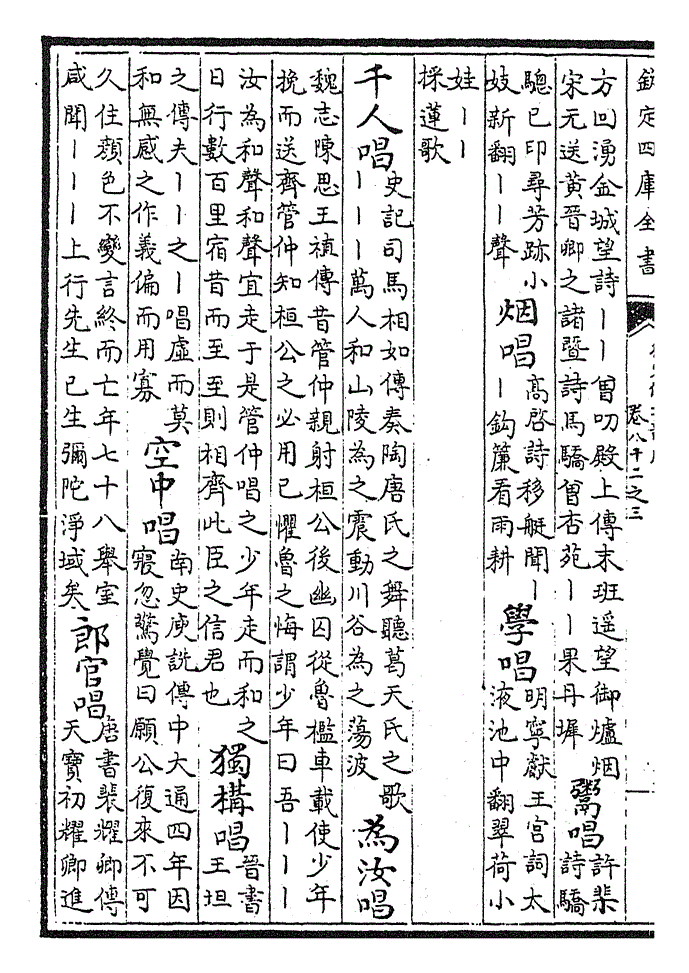 欽定四庫全書
卷八十二之三
方回湧金城望詩丨丨曾叨殿上傳末班遥望御爐烟
宋无送黄晉卿之諸暨詩馬驕曾杏苑丨丨果丹墀
鬻唱
許棐
詩驕
驄已印尋芳跡小
妓新翻丨丨聲
烟唱
高啓詩移艇聞丨
丨鈎簾看雨耕
學唱
明寧獻王宫詞太
液池中翻翠荷小
娃丨丨
採蓮歌
千人唱
史記司馬相如傳奏陶唐氏之舞聽葛天氏之歌
丨丨丨萬人和山陵為之震動川谷為之蕩波
為汝唱
魏志陳思王植傳昔管仲親射桓公後幽囚從魯檻車載使少年
挽而送齊管仲知桓公之必用已懼魯之悔謂少年曰吾丨丨丨
汝為和聲和聲宜走于是管仲唱之少年走而和之
日行數百里宿昔而至至則相齊此臣之信君也
獨搆唱
晉書
王坦
之傳夫丨丨之丨唱虚而莫
和無感之作義偏而用寡
空中唱
南史庾詵傳中大通四年因
寢忽驚覺曰願公復來不可
久住顔色不變言終而亡年七十八舉室
咸聞丨丨丨上行先生已生彌陀淨域矣
郎官唱
唐書裴耀卿傳
天寶初耀卿進